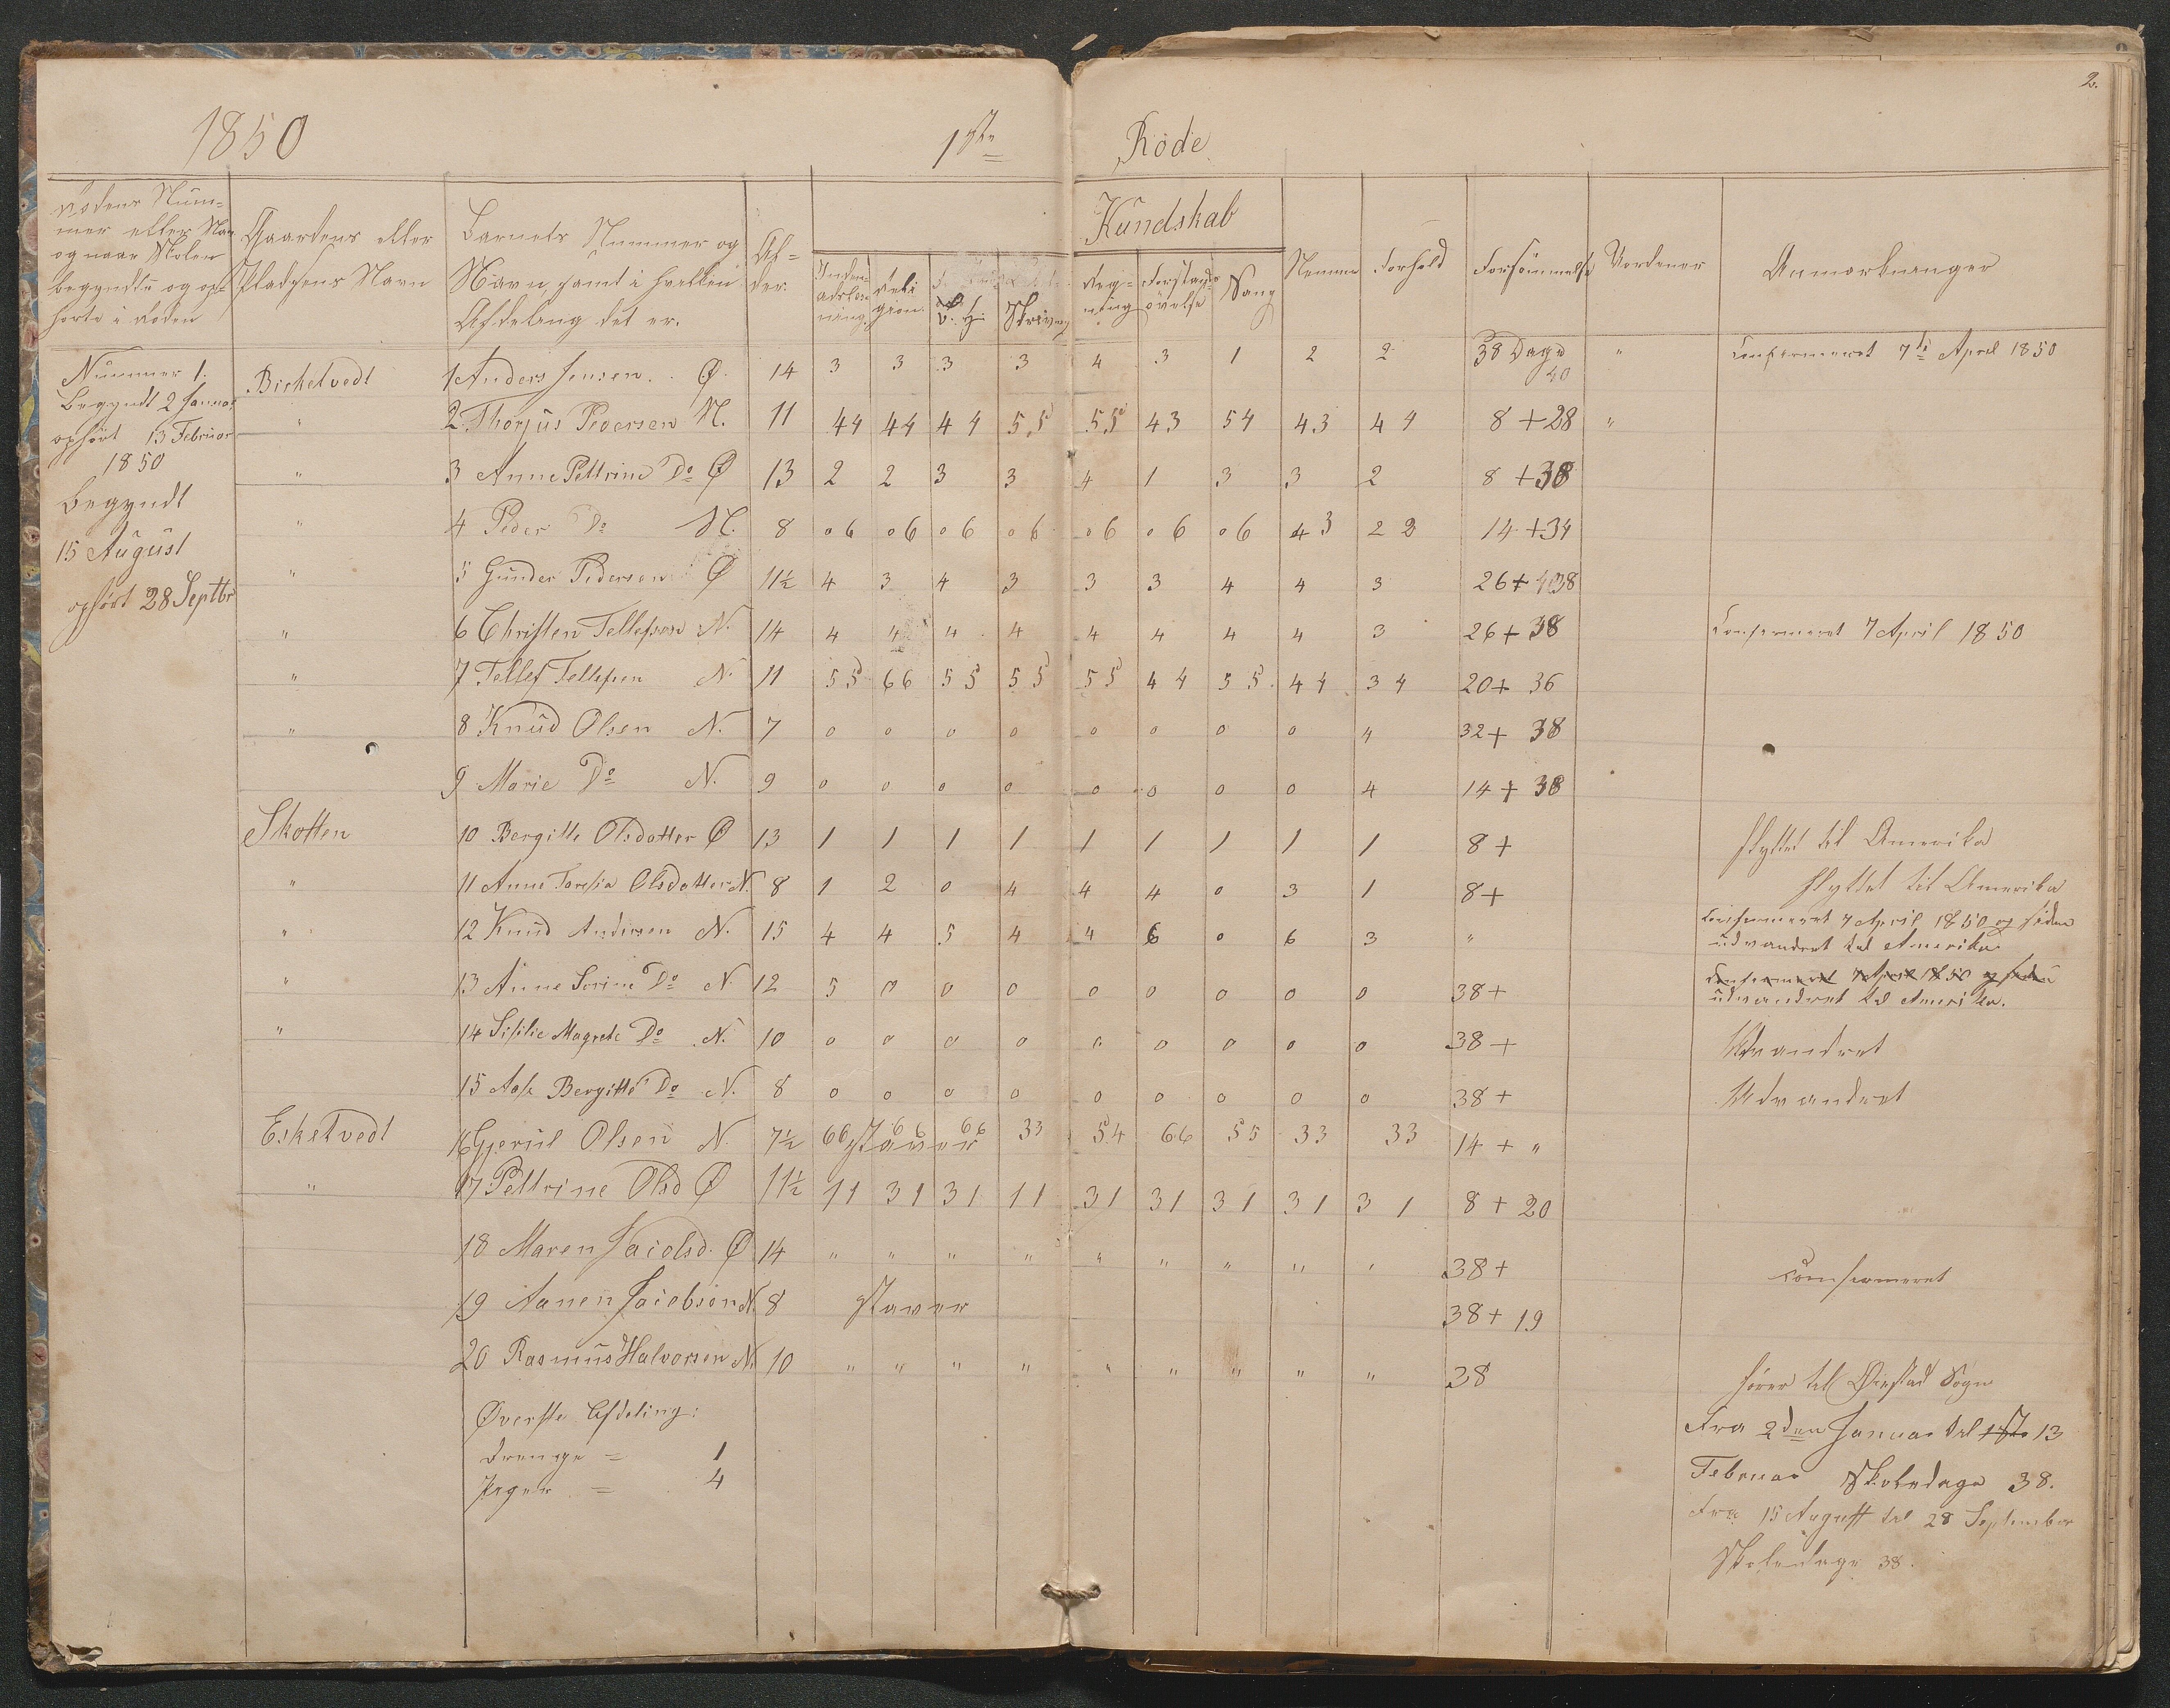 2.
1850 1ste Rode
Rodens Num-
mer eller Nav
og naar Skolen
begyndte og op-
hørte i Roden
Gaardens eller
Pladsens Navn
Barnets Nummer og
Navn, samt i hvilken
Afdeling det er.
Al-
der.
Kundskab
Religion
Skrivng
Reg-
ning
Forstands-
øvelse
Sang
Nemme
Forhold
Forsømmelse
Anmærkninger
Nummer 1.
Begyndt 2 Januar
ophørt 13 Februar
1850
Begyndt
15 August
ophørt 28 Septbr
Birketvedt 1 Anders Jensen. Ø. 14 3 3 3 3 4 3 1 2 2 38 Dage " Confirmeret 7de April 1850
40
" 2. Thorjus Pedersen N. 11 44 44 44 55 55 43 54 43 44 8 + 28 "
" 3 Anne Pettrine Do Ø 13 2 2 3 3 4 1 3 3 2 8 + 38
" 4 Peder Do N. 8 06 06 06 06 06 06 06 43 22 14 + 34
" 5 Gunder Pedersen Ø 11½ 4 3 4 3 3 3 4 4 3 26 + 38
" 6 Christen Tellefsen N. 14 4 4 4 4 4 4 4 4 3 26 + 38 Confirmeret 7 April 1850
" 7 Tellef Tellefsen N. 11 55 66 55 55 55 44 55 44 34 20 + 36
" 8 Knud Olsen N. 7 0 0 0 0 0 0 0 0 4 32 + 38
9 Marie Do N. 9 0 0 0 0 0 0 0 0 4 14 + 38
Skotten 10 Bergitte Olsdatter Ø 13 1 1 1 1 1 1 1 1 1 8 + flyttet til Amerika
" 11 Anne Teresia Olsdatter N. 8 1 2 0 4 4 4 0 3 1 8 + flyttet til Amerika
" 12 Knud Andersen N. 15 4 4 5 4 4 6 0 6 3 " Confirmeret 7 April 1850 og siden
udvandret til Amerika
" 13 Anne Serine Do N. 12 5 0 0 0 0 0 0 0 0 38 + Confirmeret 7 April 1850 og siden
udvandret til Amerika.
" 14 Sisilie Magrete Do N. 10 0 0 0 0 0 0 0 0 0 38 + Udvandret
15 Bergitte Do N. 8 0 0 0 0 0 0 0 0 0 38 + Udvandret
Esketvedt 16 Gjerul Olsen N 7½ 66 66 66 33 54 66 55 33 33 14 + "
staver
" 17 Pettrine Olsd Ø 11½ 11 31 31 11 31 31 31 31 31 8 + 20
18 Maren Jacobsd. Ø 14 " " " " " " " " " 38 + Confirmeret
19 Aanen Jacobsen N. 8 staver 38 + 19
20 Rasmus Halvorsen N. 10 " " " " " " " " " 38 hører til Øiestad Sogn
Øverste Afdeling:
Drenge = 1
Piger = 4
Fra 2den Januar til 1ste 13
Februar Skoledage 38.
Fra 15 August til 28 September
Skoledage 38.